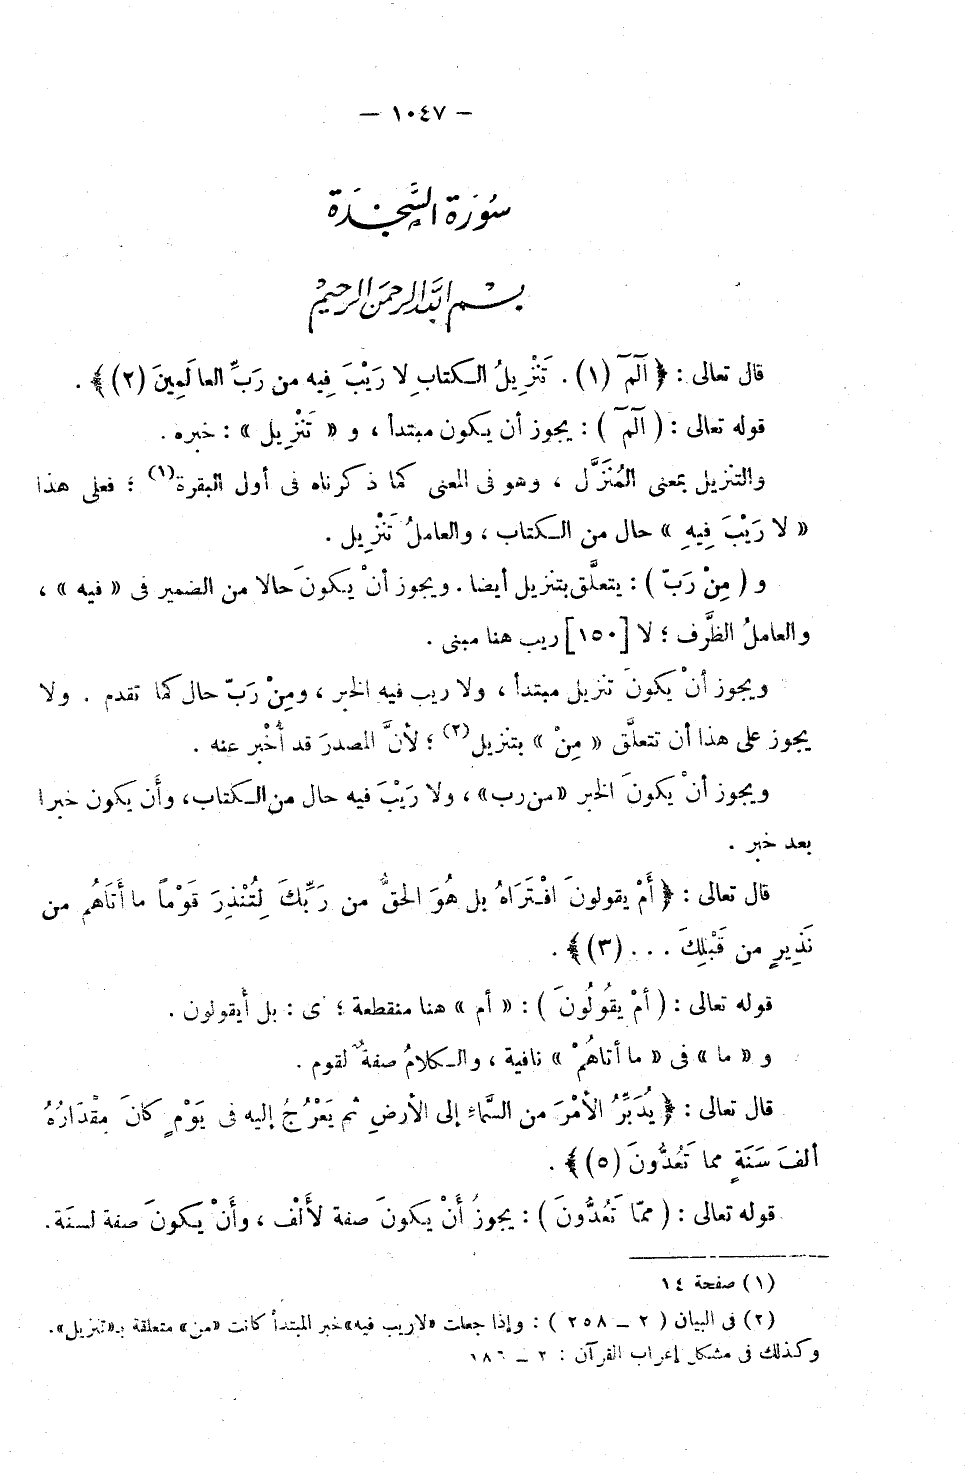 — ١٠٤٧ —
سُورَة السَّجْدَة
بسم الله الرحمن الرحيم
قال تعالى : ﴿ آلٓمٓ (١) . تَنْزِيلُ الكتابِ لا رَيْبَ فِيه من رَبِّ العالَمِينَ (٢) ﴾ .
قوله تعالى : ( آلٓمٓ ) : يجوز أن يكون مبتدأ ، و « تَنْزِيل » : خبره .
والتنزيل بمعنى المُنَزَّل ، وهو فى المعنى كما ذكرناه فى أول البقرة(١) ؛ فعلى هذا
« لا رَيْبَ فِيهِ » حال من الكتاب ، والعاملُ تَنْزِيل .
و ( مِنْ رَبّ ) : يتعلَّق بتنزيل أيضا . ويجوز أنْ يكونَ حالا من الضمير فى « فيه » ،
والعاملُ الظَّرف ؛ لا [١٥٠] ريب هنا مبنى .
ويجوز أنْ يكونَ تنزيل مبتدأ ، ولا ريب فيه الخبر ، ومِنْ رَبّ حال كما تقدم . ولا
يجوز على هذا أن تتعلَّق « مِنْ » بتنزيل(٢) ؛ لأنَّ المصدرَ قد أُخْبر عنه .
ويجوز أنْ يكونَ الخبر «من رب» ، ولا رَيْبَ فيه حال من الكتاب، وأَن يكون خبرا
بعد خبر .
قال تعالى : ﴿ أَمْ يقولونَ افْتَرَاهُ بل هُوَ الحقُّ من رَبِّكَ لِتُنْذِرَ قَوْماً ما أَتَاهُم من
نَذِيرٍ من قَبْلِكَ . . . (٣) ﴾ .
قوله تعالى : ( أمْ يقُولُونَ ) : « أم » هنا منقطعة ؛ ى : بل أيقولون .
و « ما » فى « ما أتاهُمْ » نافية ، والكلامُ صفةٌ لقوم .
قال تعالى : ﴿ يُدَبِّرُ الأمْرَ من السَّمَاءِ إلى الأرضِ ثم يَعْرُجُ إليه فى يَوْمٍ كانَ مِقْدَارُهُ
ألفَ سَنَةٍ مما تَعُدُّونَ (٥) ﴾ .
قوله تعالى : ( ممّا تَعُدُّونَ ) : يجوزُ أَنْ يكونَ صفة لأَلْف ، وأَنْ يكونَ صفة لسنَة .
(١) صفحة ١٤
(٢) فى البيان ( ٢ – ٢٥٨ ) : وإذا جعلت «لاريب فيه» خبر المبتدأ كانت «من» متعلقة بـ«تنزيل» .
وكذلك فى مشكل إعراب القرآن : ٢ – ١٨٦